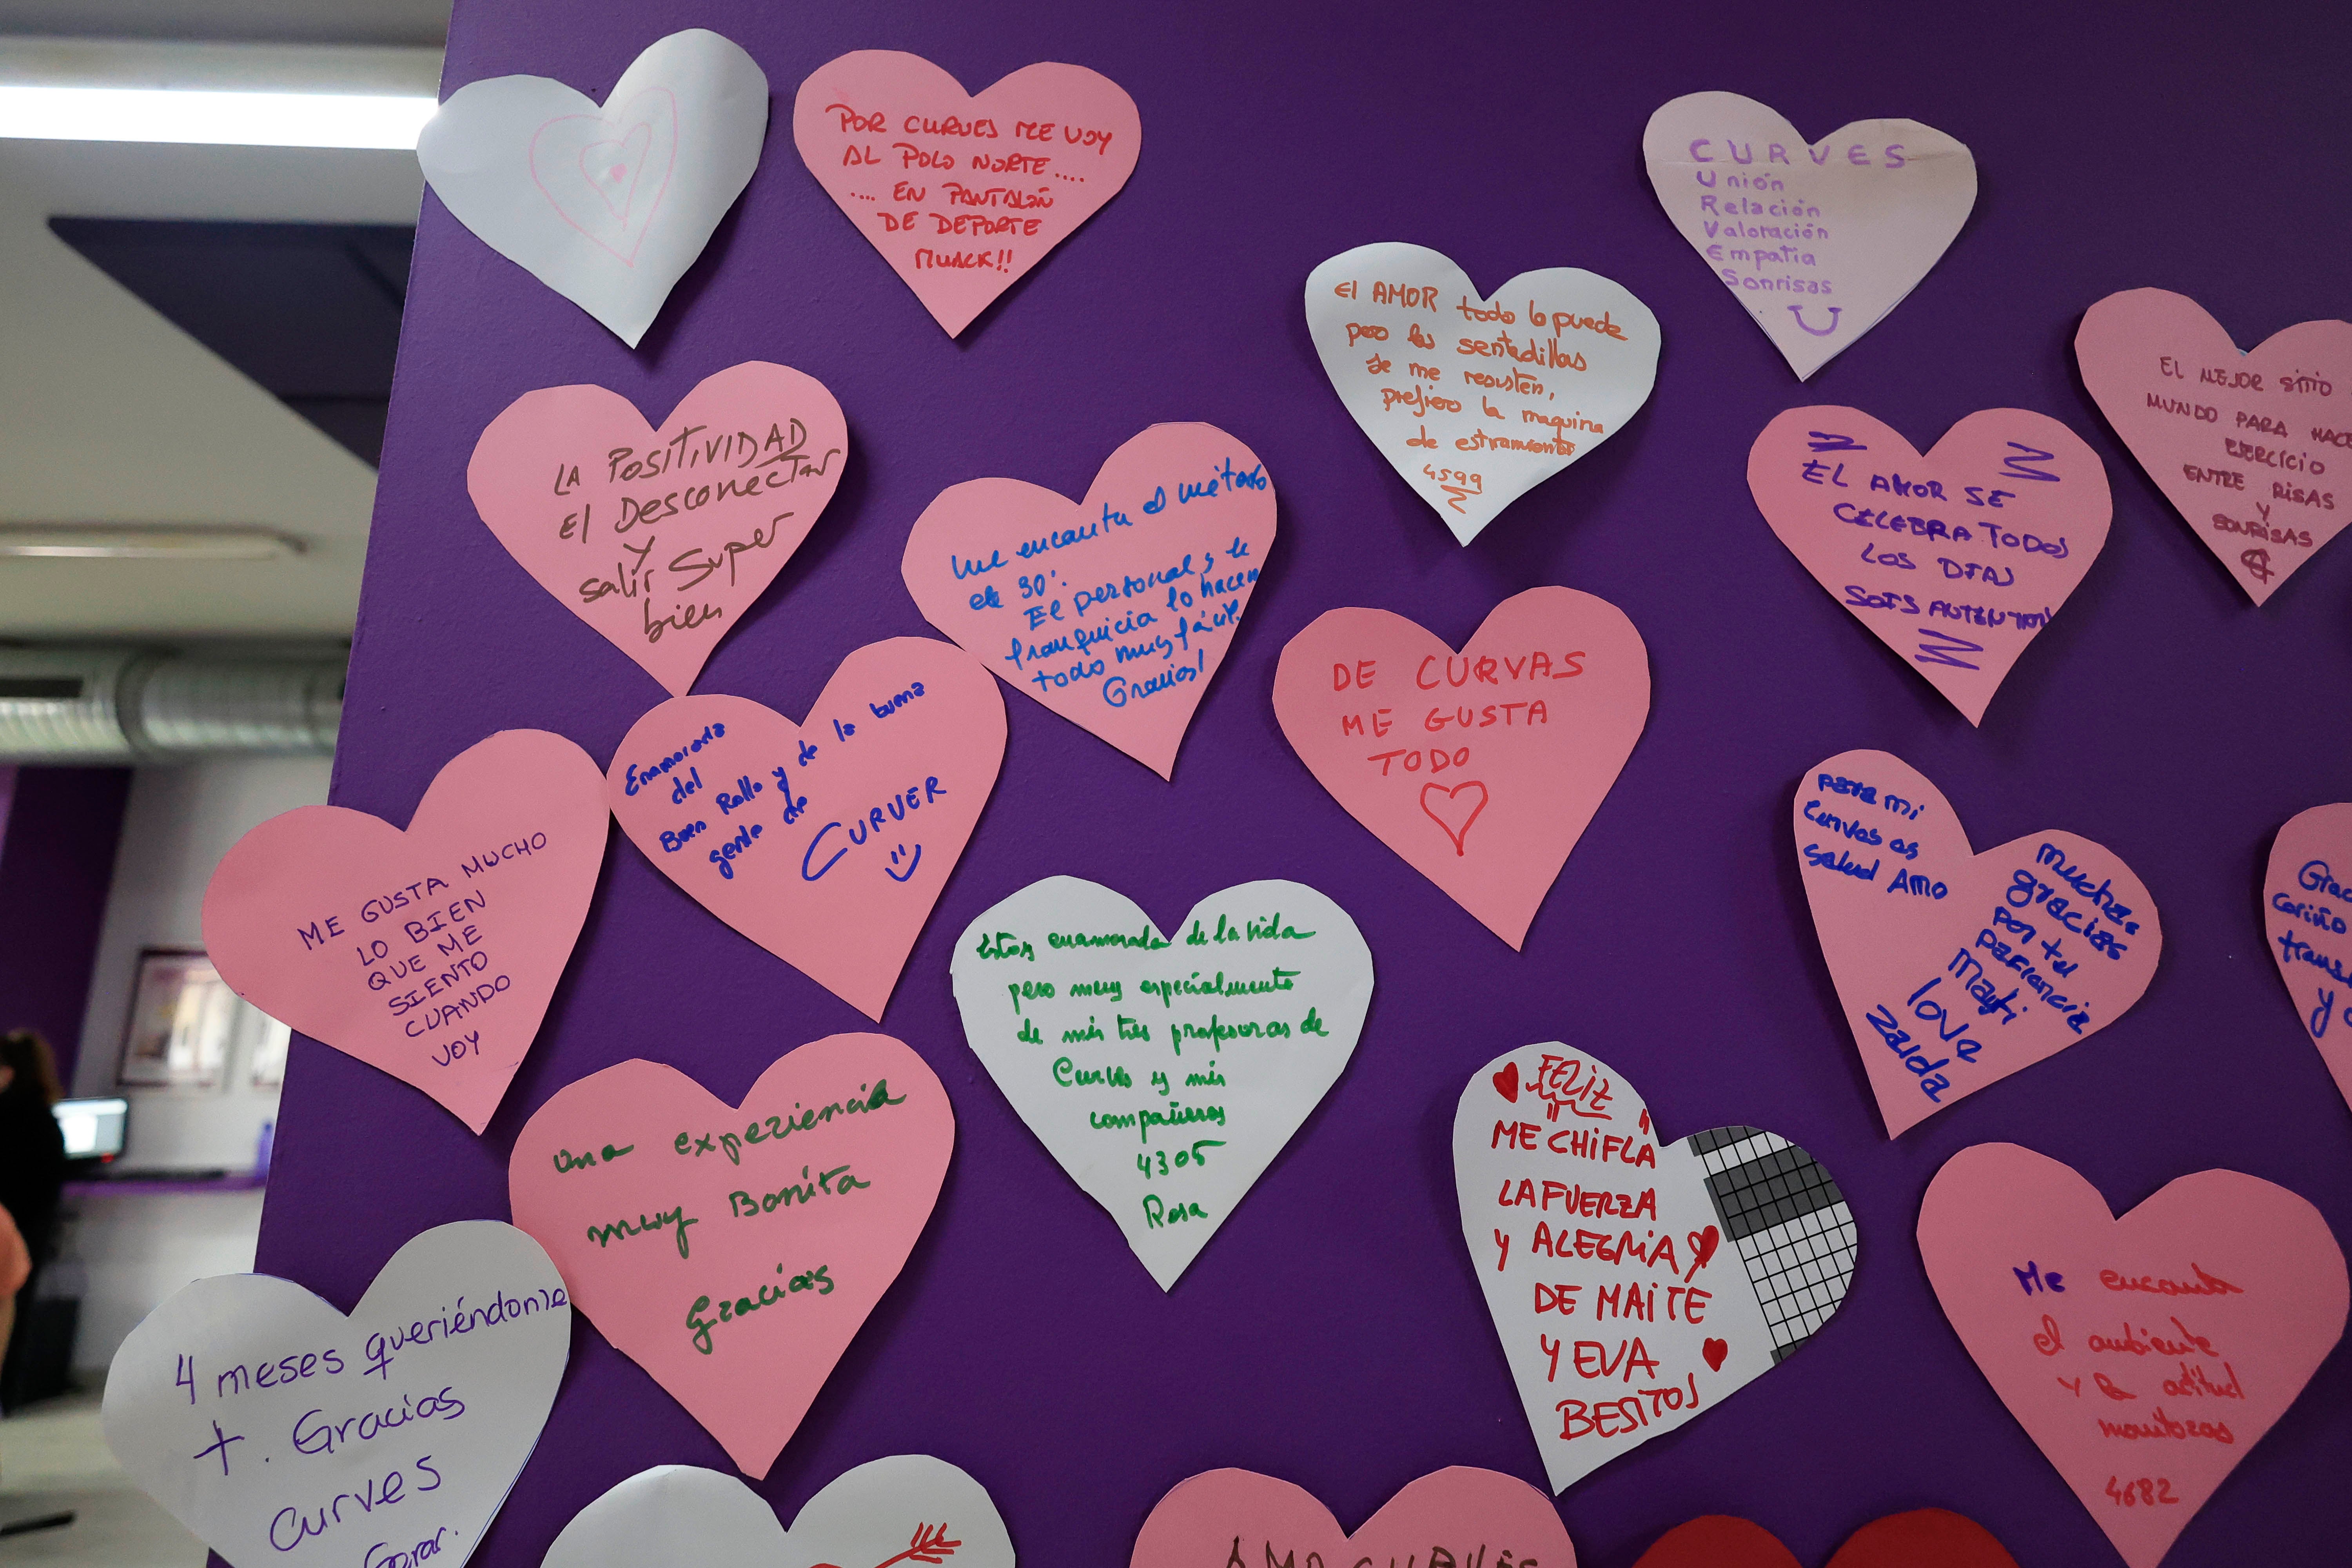 POR CURVES ME VOY
AL POLO NORTE....
... EN PANTALÓN
DE DEPORTE
MUACK!!
CURVES
Unión
Relación
Valoración
Empatía
Sonrisas
El AMOR todo lo puede
pero las sentadillas
se me resisten,
prefiero la maquina
de estiramiento
4599
EL MEJOR SITIO
MUNDO PARA HACE
EJERCICIO
ENTRE RISAS
Y
SONRISAS
LA POSITIVIDAD
El Desconectar
y
salir super
bien
me encanta el método
de 30'.
El personal y la
franquicia lo hacen
todo muy fácil.
Gracias!
EL AMOR SE
CELEBRA TODOS
LOS DIAS
SOIS AUTENTICAS
DE CURVAS
ME GUSTA
TODO
Enamorada
del
Buen Rollo y de la buena
gente de
CURVER
ME GUSTA MUCHO
LO BIEN
QUE ME
SIENTO
CUANDO
VOY
para mi
Curvas es
salud AMO
muchas
gracias
por tu
paciencia
Mayti
love
Zaida
Grac
Cariño
trans
y
Estoy enamorada de la vida
pero muy especialmente
de mis tres profesoras de
Curves y mis
compañeras
4305
Rosa
una experiencia
muy Bonita
Gracias
FELIZ
ME CHIFLA
LA FUERZA
Y ALEGRIA
DE MAITE
Y EVA
BESITOS
Me encanta
el ambiente
y la actitud
monitoras
4682
4 meses queriéndome
+. Gracias
Curves
AMO CURVES